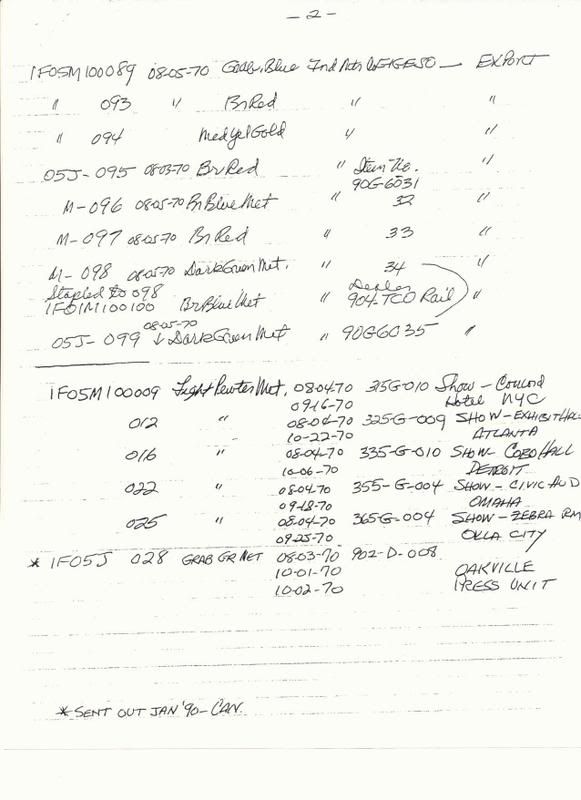 - 2 -
1F05M100089 08-05-70 Grab. Blue EXPORT
" 093 " Br Red " "
" 094 Med Yel Gold " "
05J-095 08-03-70 Br Red " Item No. "
90G-6031
M-096 08-05-70 Br Blue Met " 32 "
M-097 08-05-70 Br Red " 33 "
M-098 08-05-70 Dark Green Met. " 34 "
Stapled to 098 Dealer
1F01M100100 Br Blue Met " 904-TCO Rail "
08-05-70
05J-099 ↓ Dark Green Met " 90G6035 "
1F05M100009 Light Pewter Met. 08-04-70 315G-010 Show - Concord
09-16-70 Hotel NYC
012 " 08-04-70 325G-009 SHOW-EXHIBIT HALL
10-22-70 ATLANTA
016 " 08-04-70 335-G-010 SHOW- COBO HALL
10-06-70 DETROIT
022 " 08-04-70 355-G-004 SHOW - CIVIC AUD
09-18-70 OMAHA
025 " 08-04-70 365G-004 SHOW-ZEBRA RM
09-25-70 OKLA CITY
* 1F05J 028 GRAB GR MET 08-03-70 902-D-008
10-01-70 OAKVILLE
10-02-70 PRESS UNIT
* SENT OUT JAN '90 - CAN.